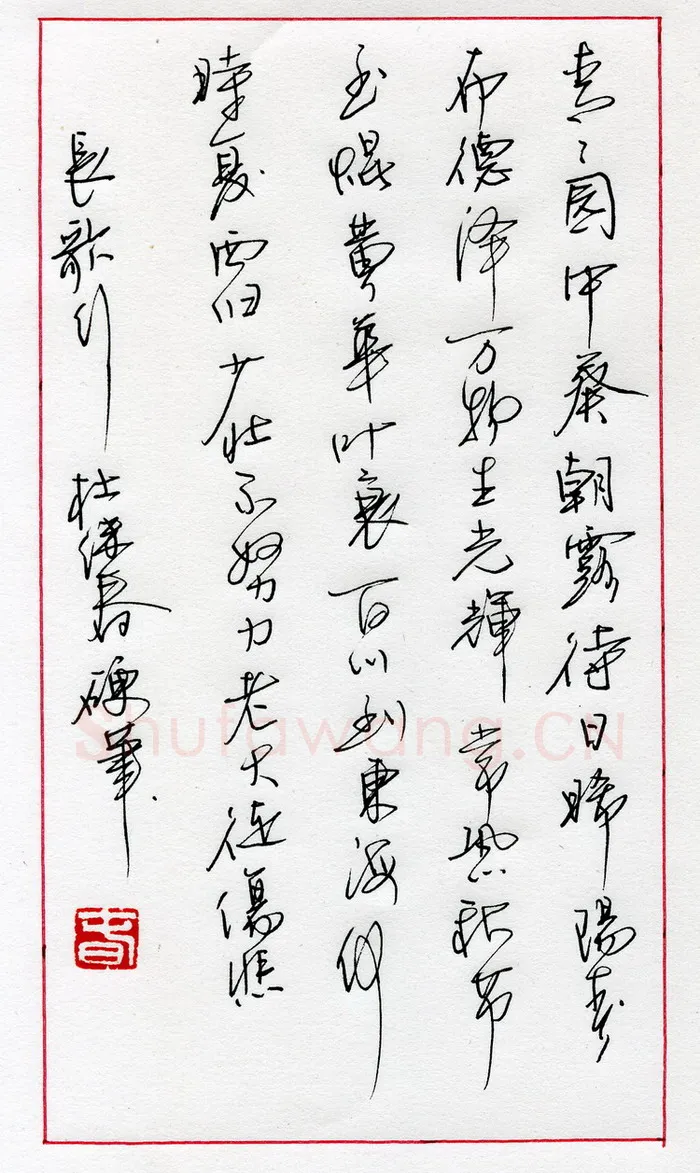 青〻园中葵朝露待日晞陽春
布德泽万物生光輝常恐秋节
至焜黄华叶衰百川到東海何
時复西归少壮不努力老大徒傷悲
長歌行 杜保春硬筆
春
Shufawang.CN